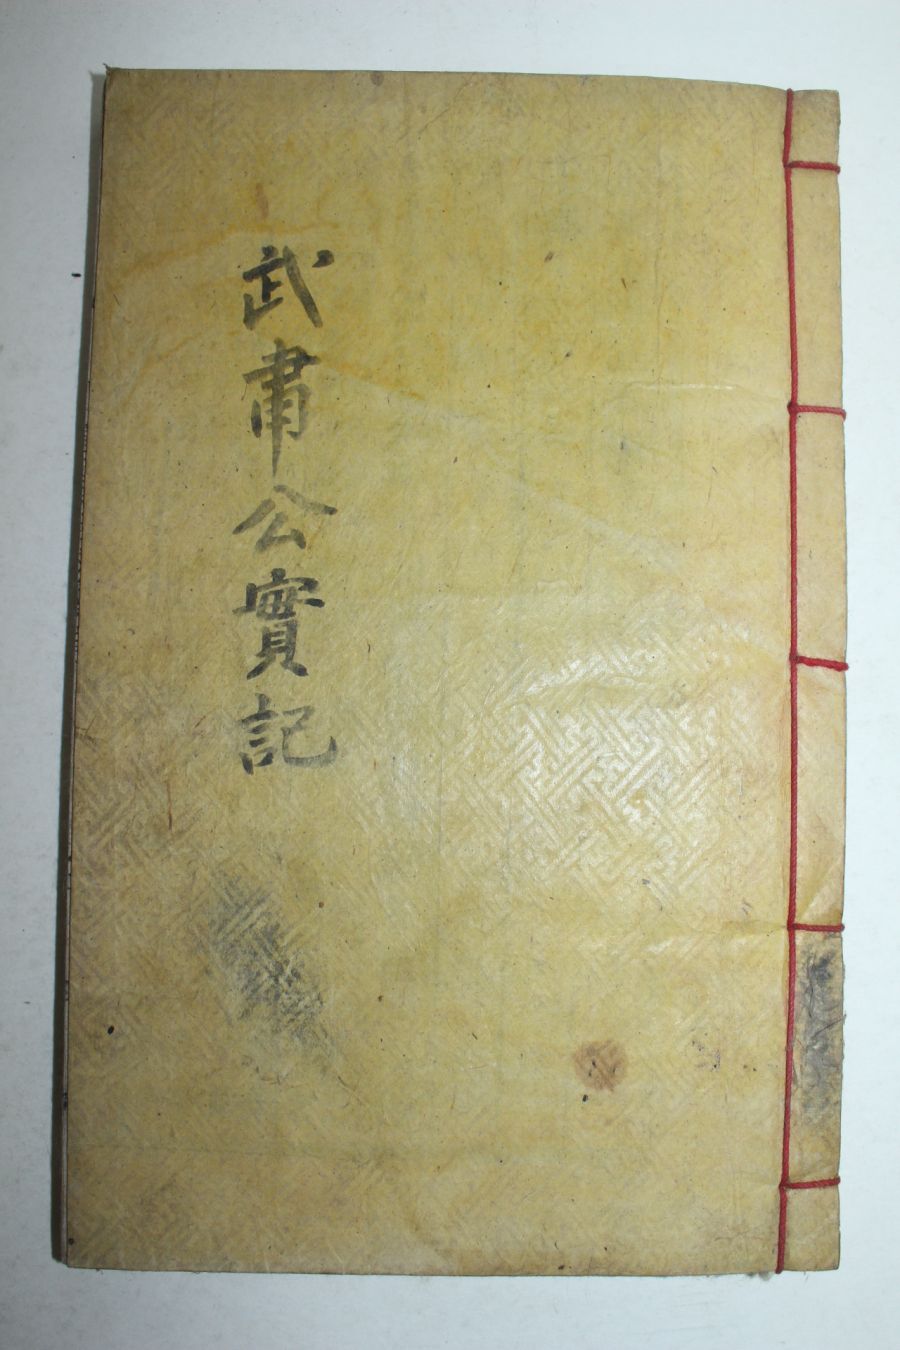 武肅公實記